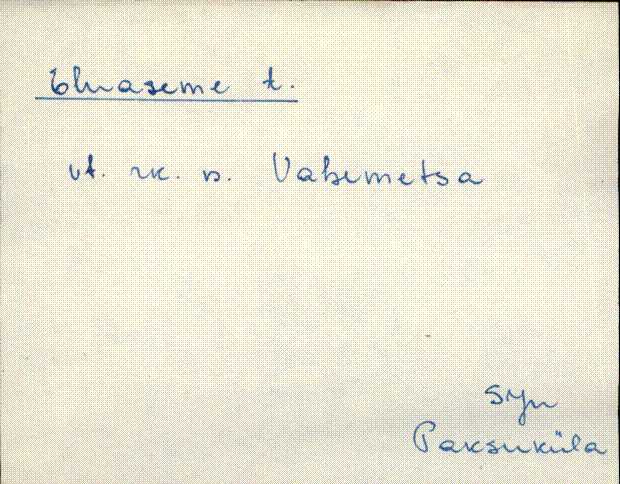 Eluaseme t.
vt. rk. s. Vahemetsa
Syn
Paksuküla